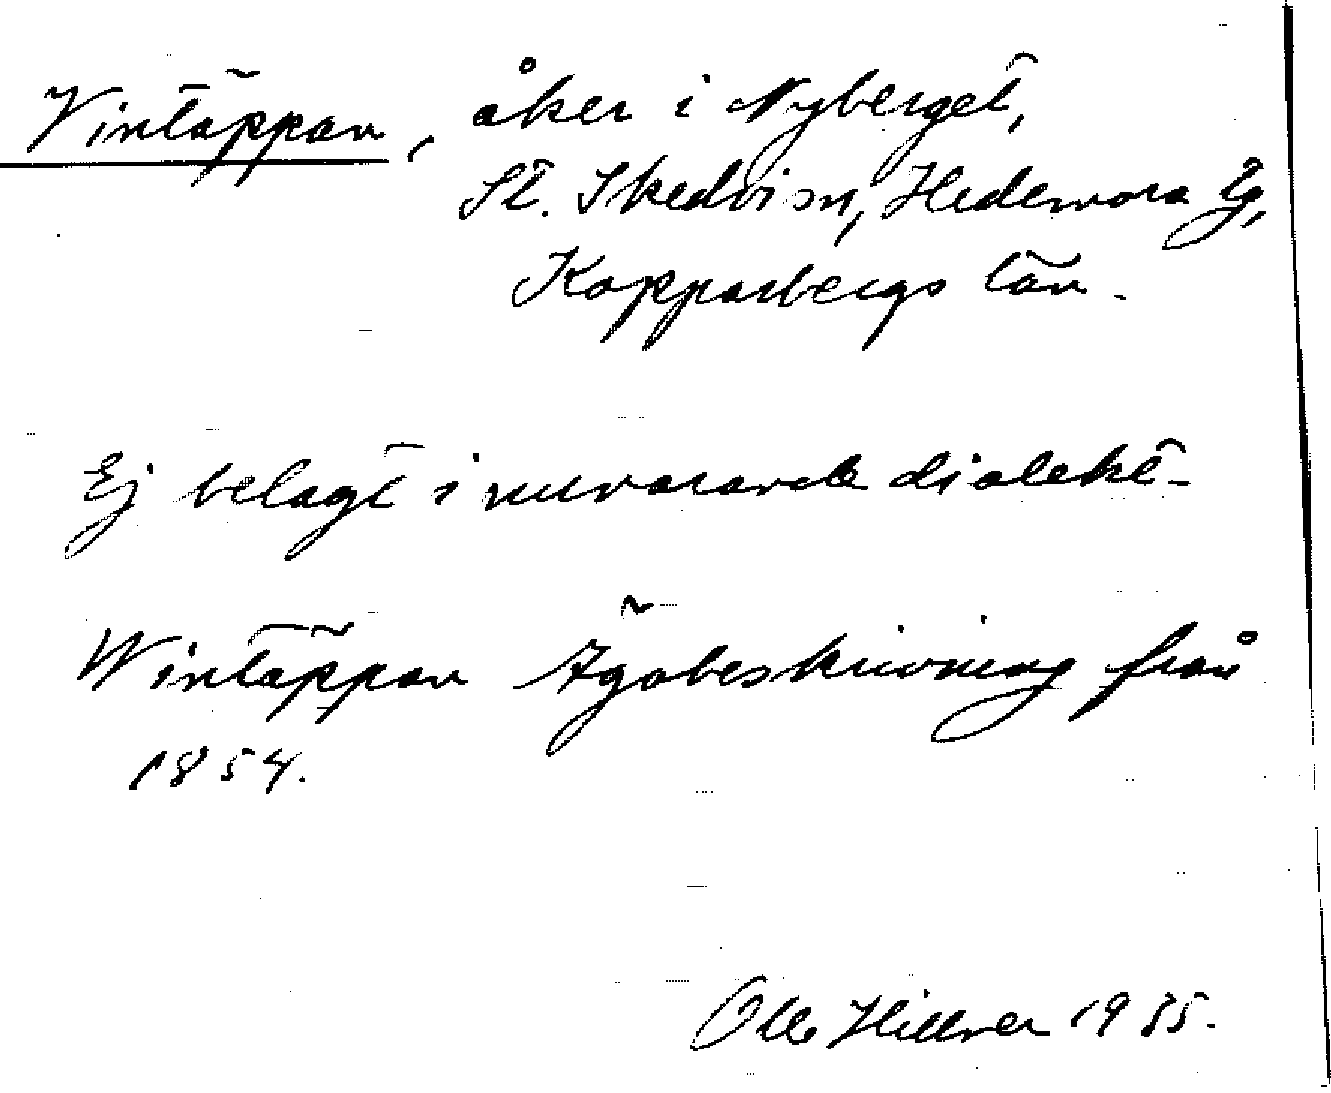 Vintäppan, åker i Nyberget,
St. Skedvi sn, Hedemora tg,
Kopparbergs län.
Ej belagt i nuvarande dialekt.
Wintäppan Ägobeskrivning från
1854.
Olle Hillner 1935.